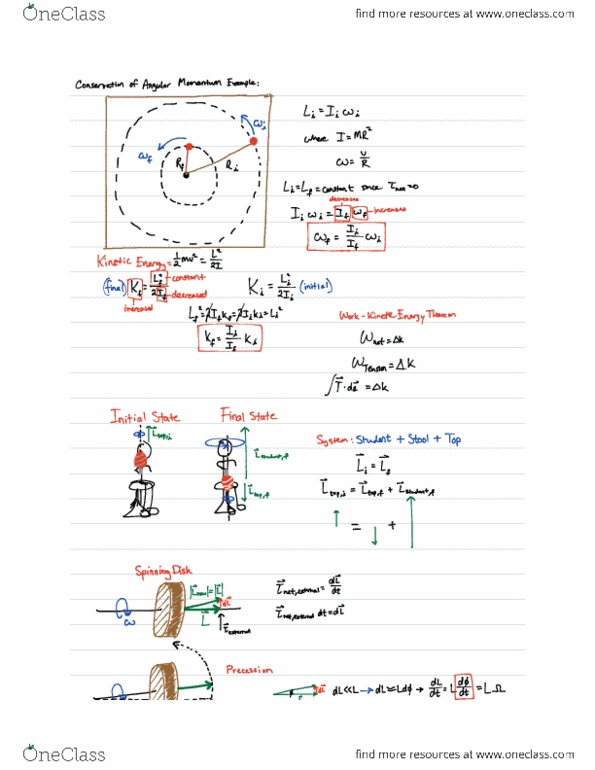 OneClass
find more resources at www.oneclass.com
Conservation of Angular Momentum Example:
ω_i
ω_f
R_f
R_i
L_i = I_i ω_i
where I = MR²
ω = v/R
L_i = L_f = constant since τ_net = 0
decreases
I_i ω_i = I_f ω_f → increases
ω_f = I_i/I_f ω_i
Kinetic Energy = ½mv² = L²/2I
(final) K_i = L_i²/2I_f → constant
decreased
increased
K_i = L_i²/2I_i (initial)
L_f² = 2I_f K_f = 2I_i K_i = L_i²
K_f = I_i/I_f K_i
Work - Kinetic Energy Theorem
W_net = Δk
W_Tension = Δk
∫T⃗·dr⃗ = Δk
Initial State
Final State
L⃗_top,i
L⃗_student,f
L⃗_top,f
System: Student + Stool + Top
L⃗_i = L⃗_f
L⃗_top,i = L⃗_top,f + L⃗_student,f
↑ = ↓ + ↑
Spinning Disk
|L⃗_new| = |L⃗|
dL⃗
L⃗
ω
τ⃗_external
τ⃗_net,external = dL⃗/dt
τ⃗_net,external dt = dL⃗
Precession
dL dL<<L → dL = Ldϕ → dL/dt = L dϕ/dt = LΩ
OneClass
find more resources at www.oneclass.com